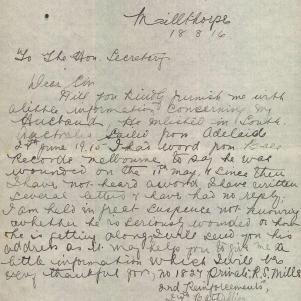 Millthorpe
18 8 16
To The Hon Secretary
Dear Sir
Will you kindly furnish me with
a little information concerning my
Husband. He enlisted in South
Australia Sailed from Adelaid
24th June 1915 I had word from Base
Records Melbourne to say he was
wounded on the 18th May, & since then
I have not heard a word I have written
several letters & have had no reply.
I am held in great suspence not knowing
whether he is seriously wounded or how
he is getting along I will send you his
address as it may help you to give me a
little information which I will be
very thankful for, no 1827 Private R. G. Mills
2nd Reinforcements,
Battalion